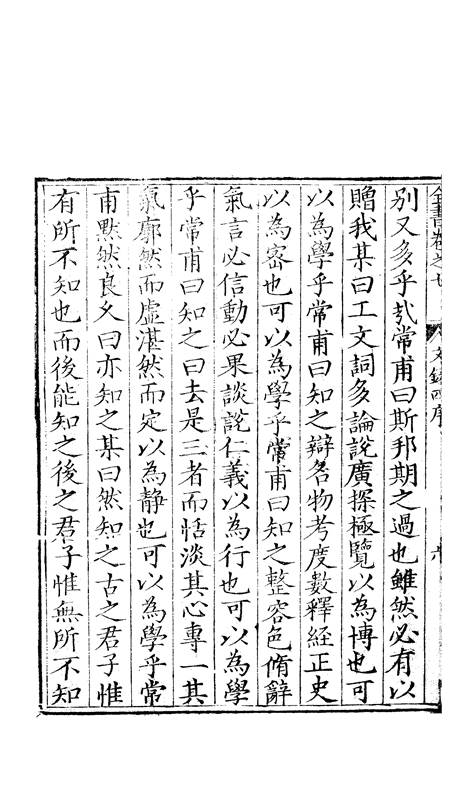 全書卷之七　文錄四序
別又多乎哉常甫曰斯邦期之過也雖然必有以
贈我某曰工文詞多論說廣探極覽以為博也可
以為學乎常甫曰知之辯名物考度數釋經正史
以為密也可以為學乎常甫曰知之整容色脩辭
氣言必信動必果談說仁義以為行也可以為學
乎常甫曰知之曰去是三者而恬淡其心專一其
氣廓然而虛湛然而定以為靜也可以為學乎常
甫黙然良乆曰亦知之某曰然知之古之君子惟
有所不知也而後能知之後之君子惟無所不知